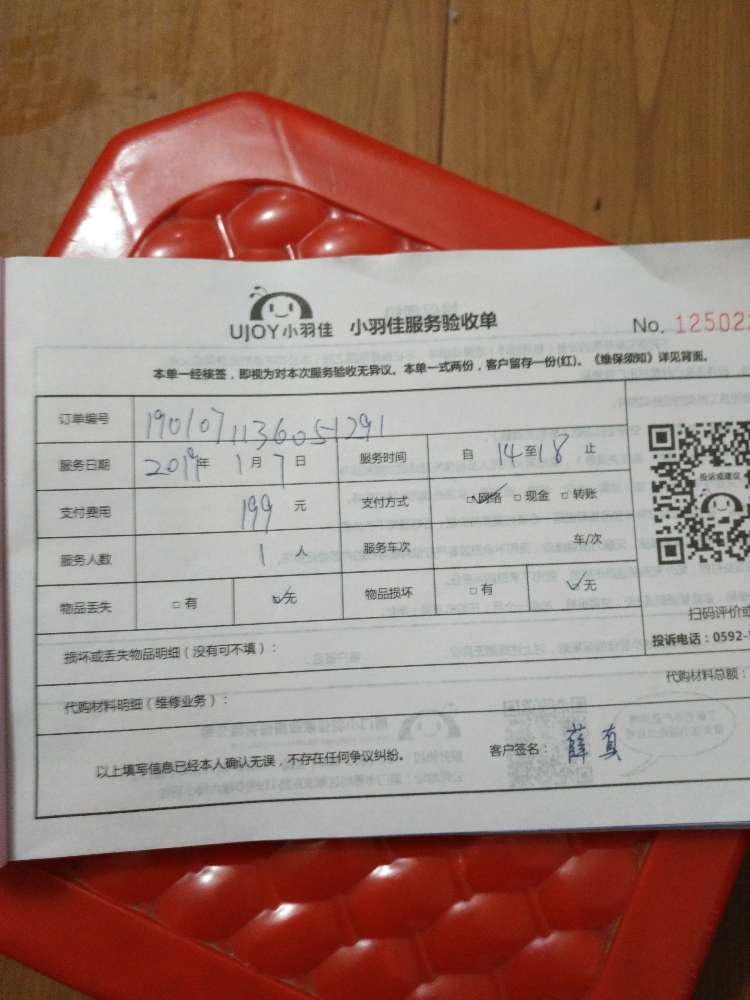 UJOY小羽佳 小羽佳服务验收单 No. 12502
本单一经核签，即视为对本次服务验收无异议。本单一式两份，客户留存一份(红)。《维保须知》详见背面。
订单编号 1901071136051291
服务日期 2019年 1月 7日 服务时间 自 14 至 18 止
支付费用 199 元 支付方式 ☑网络 □现金 □转账
服务人数 1 人 服务车次 车/次
物品丢失 □有 ☑无 物品损坏 □有 ☑无
投诉或建议
扫码评价或
投诉电话：0592-
损坏或丢失物品明细（没有可不填）：
代购材料明细（维修业务）： 代购材料总额：
以上填写信息已经本人确认无误，不存在任何争议纠纷。 客户签名： 薛真